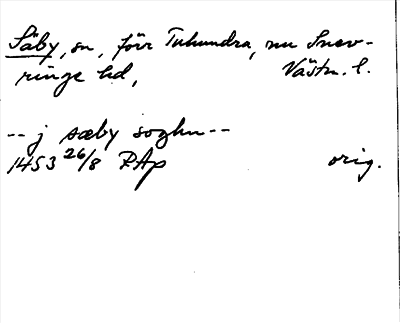 Säby, sn, förr Tuhundra, nu Snev-
ringe hd, Västm. l.
-- j sæby soghn --
1453 26/8 RAp orig.